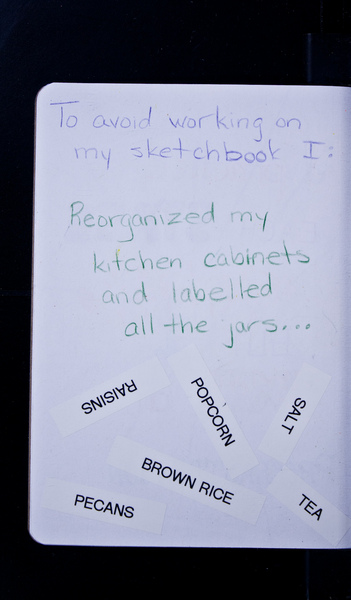 To avoid working on
my sketchbook I:
Reorganized my
kitchen cabinets
and labelled
all the jars...
RAISINS
POPCORN
SALT
BROWN RICE
PECANS
TEA